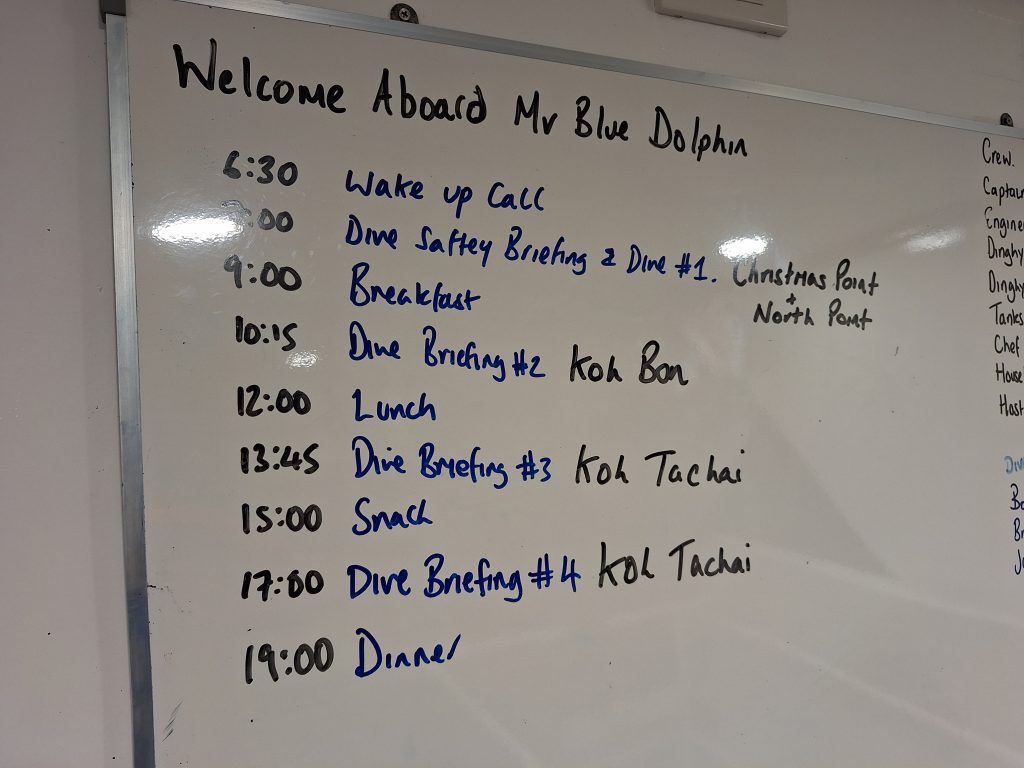 Welcome Aboard Mv Blue Dolphin
6:30 Wake up Call
7:00 Dive Saftey Briefing & Dive #1. Christmas Point
+
North Point
9:00 Breakfast
10:15 Dive Briefing #2 Koh Bon
12:00 Lunch
13:45 Dive Briefing #3 Koh Tachai
15:00 Snack
17:00 Dive Briefing #4 Koh Tachai
19:00 Dinner
Crew.
Captai
Engine
Dinghy
Dinghy
Tanks
Chef
House
Host